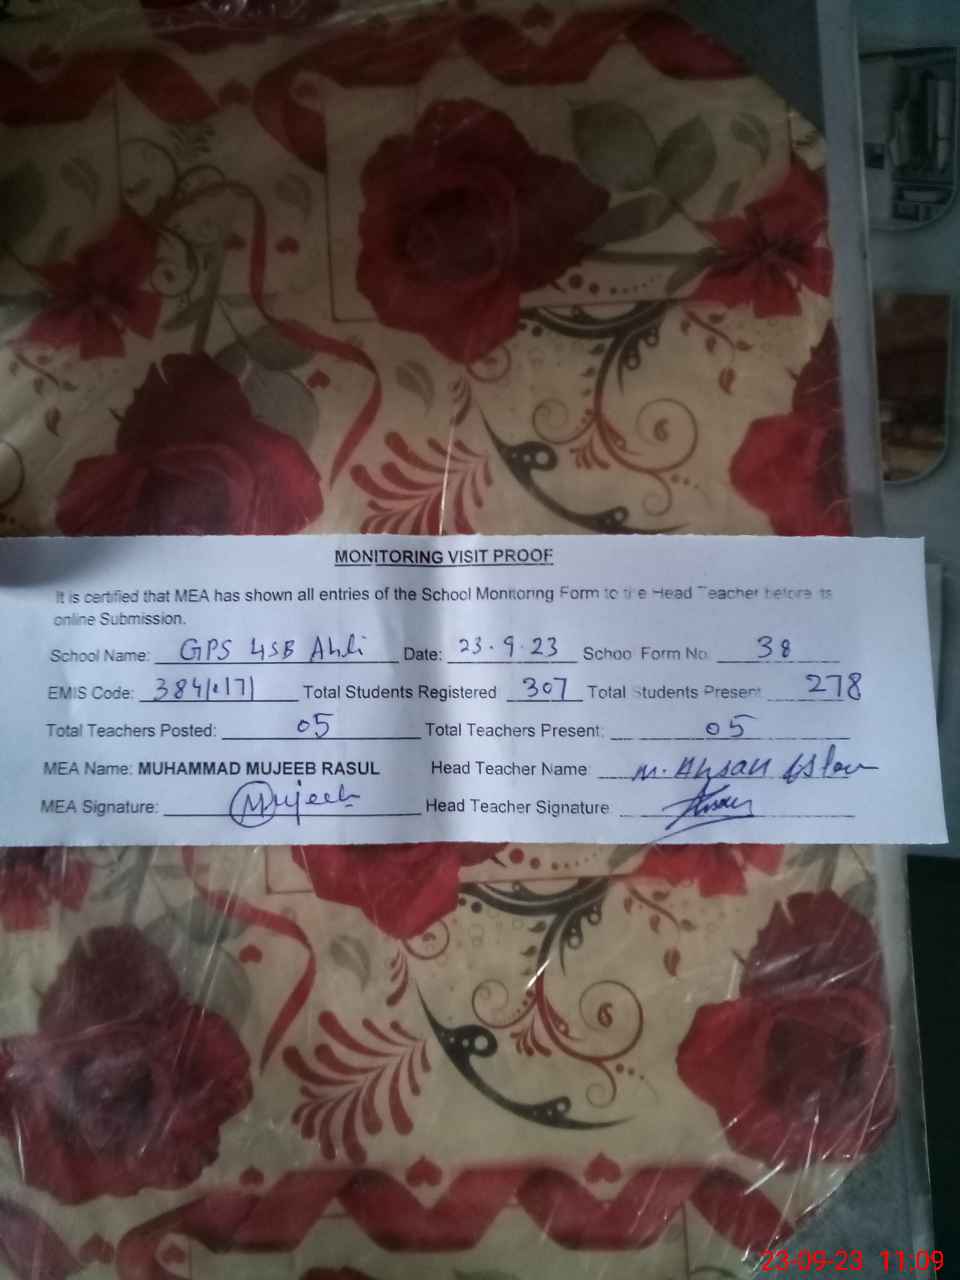 MONITORING VISIT PROOF
It is certified that MEA has shown all entries of the School Monitoring Form to the Head Teacher before its
online Submission.
School Name: GPS 4SB Date: 23.9.23 School Form No. 38
EMIS Code: Total Students Registered 307 Total Students Present 278
Total Teachers Posted: 05 Total Teachers Present: 05
MEA Name: MUHAMMAD MUJEEB RASUL Head Teacher Name: M. Ahsan
MEA Signature: Mujeeb Head Teacher Signature:
23-09-23 11:09